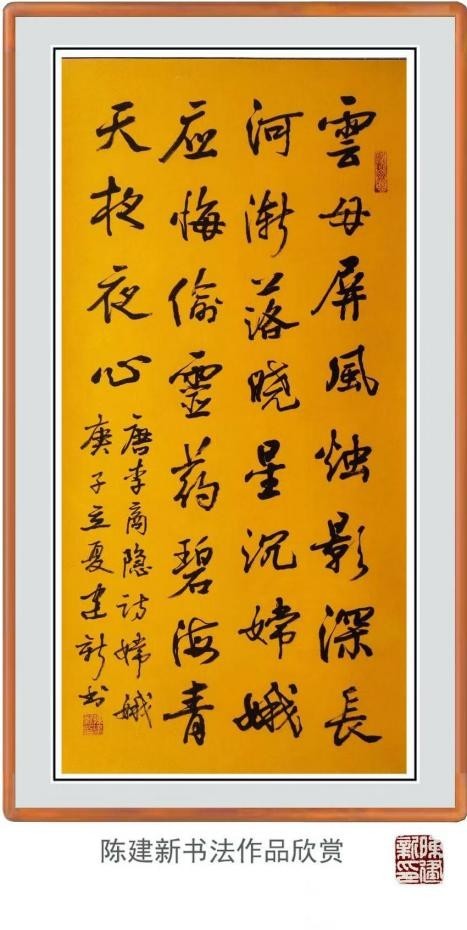 雲母屏風烛影深長
河渐落晓星沉嫦娥
应悔偷靈药碧海青
天夜夜心
唐李商隐诗嫦娥
庚子立夏建新书
陈建新书法作品欣赏
陈建新印